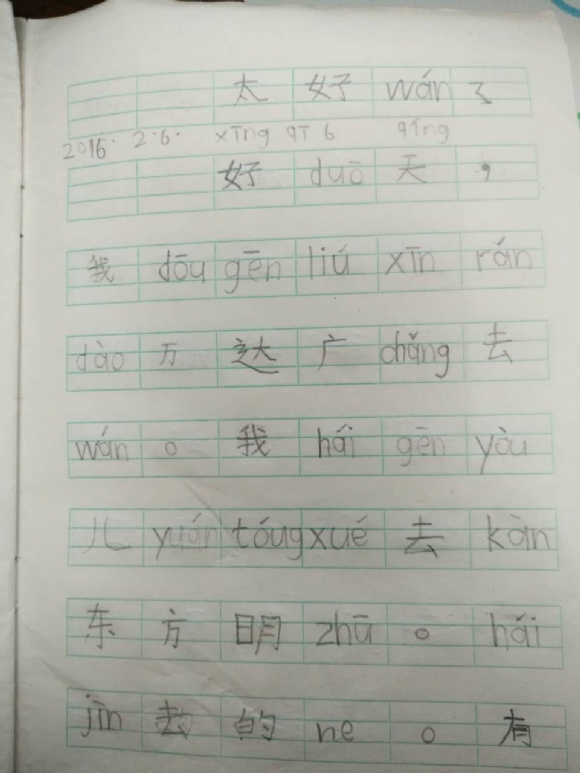 太好wán了
2016. 2.6. xīng qī 6 qíng
好duō天，
我dōu gēn liú xīn rán
dào万达广chǎng去
wán。我hái gēn yòu
儿yuán tóng xué去kàn
东方明zhū。hái
jìn去的ne。有